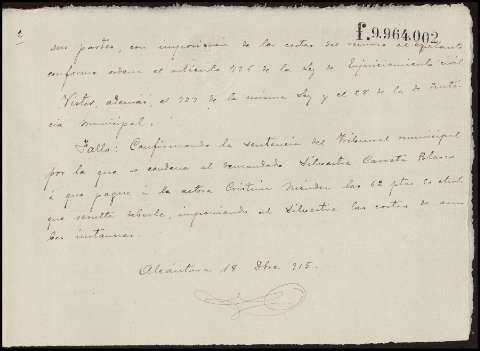 2
f.9.964.002
sus partes, con imposición de las costas del mismo al apelante
conforme ordena el artículo 736 de la Ley de Enjuiciamiento civil
Vistos, además, el 727 de la misma Ley y el 28 de la de Justi-
cia municipal.
Fallo: Confirmando la sentencia del Tribunal municipal
por la que se condena al demandado Silvestre
á que pague á la actora Cristina las 62 ptas
que resulta deberle, imponiendo al Silvestre las costas de am-
bas instancias.
Alcántara 18 Dbre 915.